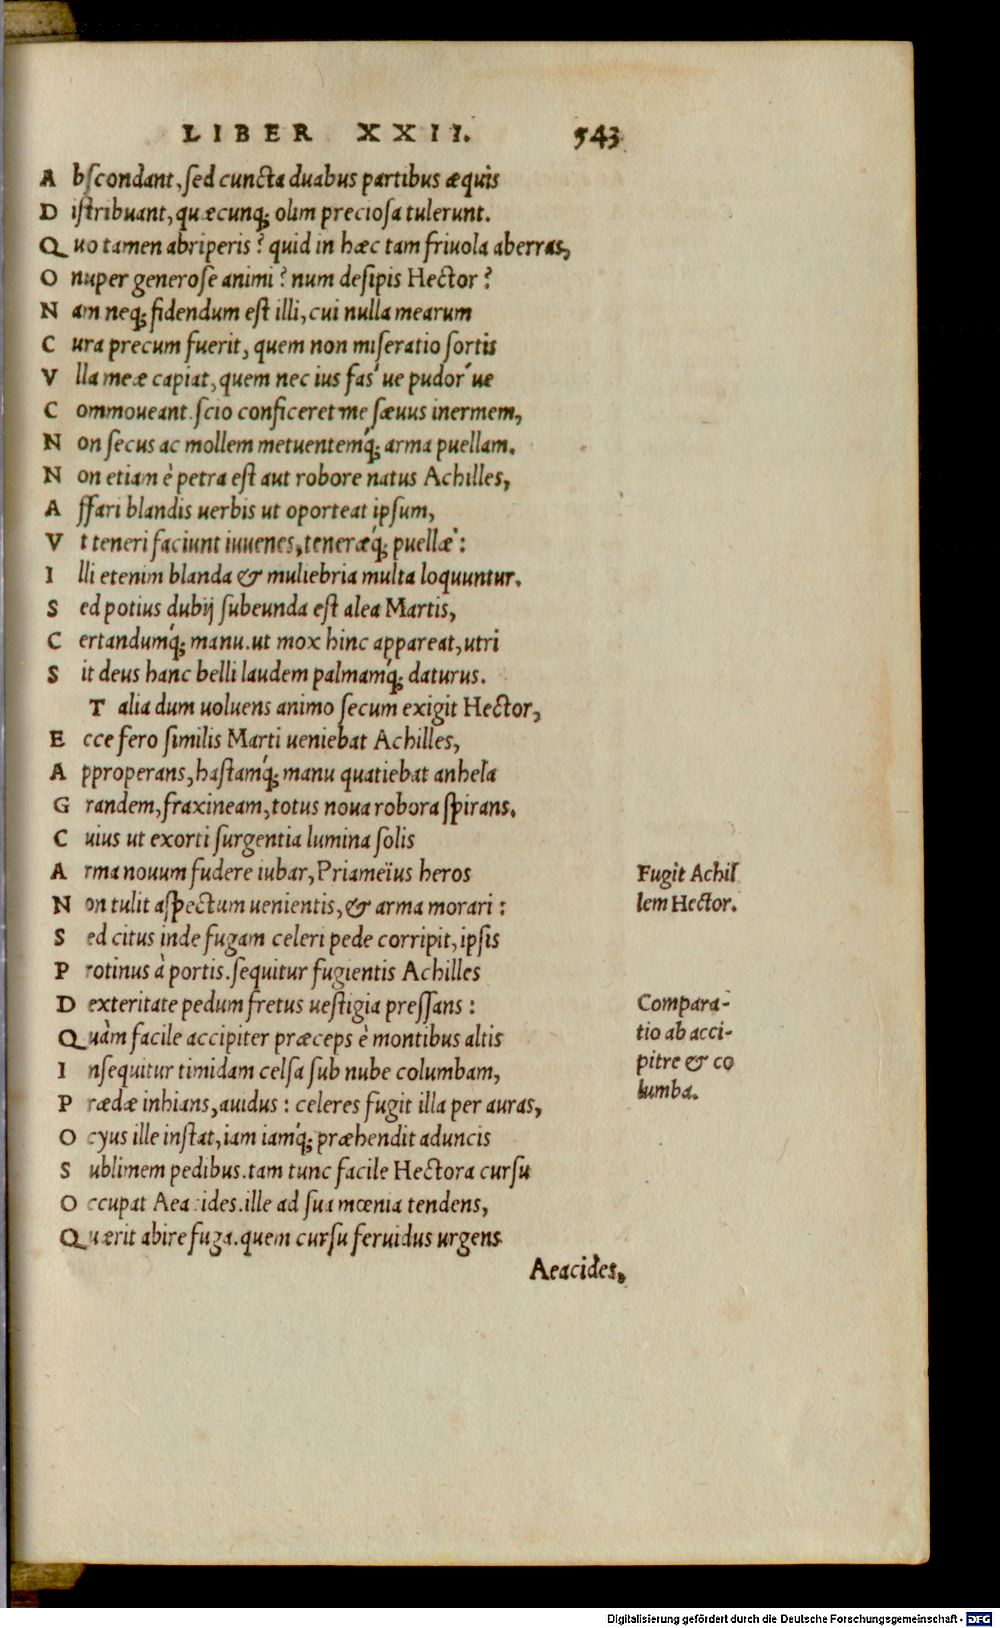 LIBER XXII. 543
A bscondant, sed cuncta duabus partibus æquis
D istribuant, quæcunq; olim preciosa tulerunt.
Q uo tamen abriperis? quid in hæc tam friuola aberras,
O nuper generose animi? num desipis Hector?
N am neq; fidendum est illi, cui nulla mearum
C ura precum fuerit, quem non miseratio sortis
V lla meæ capiat, quem nec ius fas'ue pudor'ue
C ommoueant. scio conficeret me sæuus inermem,
N on secus ac mollem metuentemq́; arma puellam.
N on etiam è petra est aut robore natus Achilles,
A ffari blandis uerbis ut oporteat ipsum,
V t teneri faciunt iuuenes, teneræq́; puellæ:
I lli etenim blanda & muliebria multa loquuntur.
S ed potius dubij subeunda est alea Martis,
C ertandumq́; manu. ut mox hinc appareat, utri
S it deus hanc belli laudem palmamq́; daturus.
T alia dum uoluens animo secum exigit Hector,
E cce fero similis Marti ueniebat Achilles,
A pproperans, hastamq́; manu quatiebat anhela
G randem, fraxineam, totus noua robora spirans.
C uius ut exorti surgentia lumina solis
A rma nouum fudere iubar, Priameïus heros
N on tulit aspectum uenientis, & arma morari:
S ed citus inde fugam celeri pede corripit, ipsis
P rotinus à portis. sequitur fugientis Achilles
D exteritate pedum fretus uestigia pressans:
Q uàm facile accipiter præceps è montibus altis
I nsequitur timidam celsa sub nube columbam,
P rædæ inhians, auidus: celeres fugit illa per auras,
O cyus ille instat, iam iamq́; præhendit aduncis
S ublimem pedibus. tam tunc facile Hectora cursu
O ccupat Aeacides. ille ad sua mœnia tendens,
Q uærit abire fuga. quem cursu feruidus urgens
Aeacides,
Fugit Achil
lem Hector.
Compara-
tio ab acci-
pitre & co
lumba.
Digitalisierung gefördert durch die Deutsche Forschungsgemeinschaft - DFG